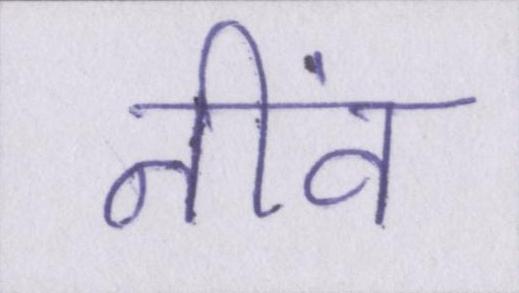 नींव